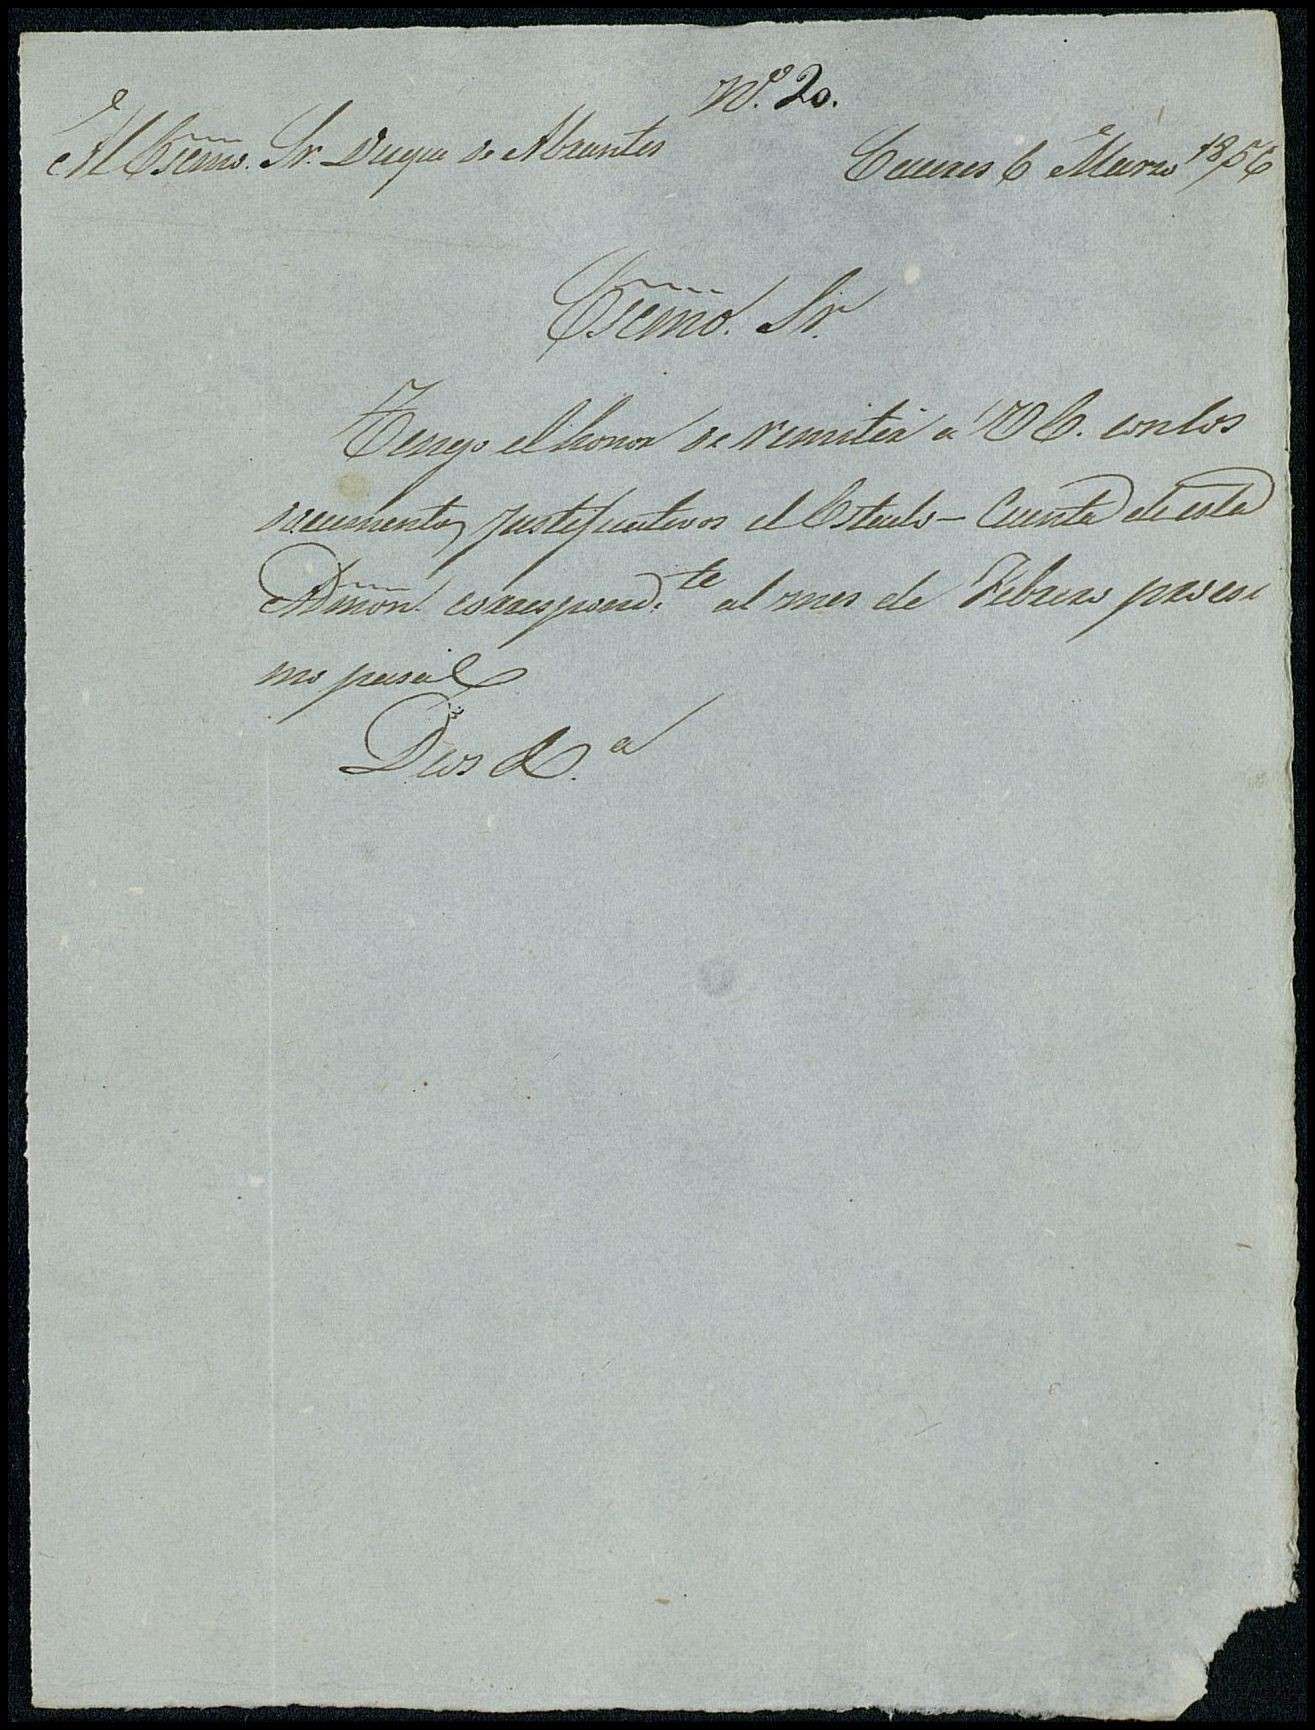 Nº. 20.
Al Escmo. Sr. Duque de Abrantes
Caceres 6 Marzo 1856
Escmo. Sr.
Tengo el honor de remitir a V E. con los
documentos justificativos el Estado - Cuenta de esta
Admon. correspond.te al mes de Febrero procsi
mo pasad
Dios &.a